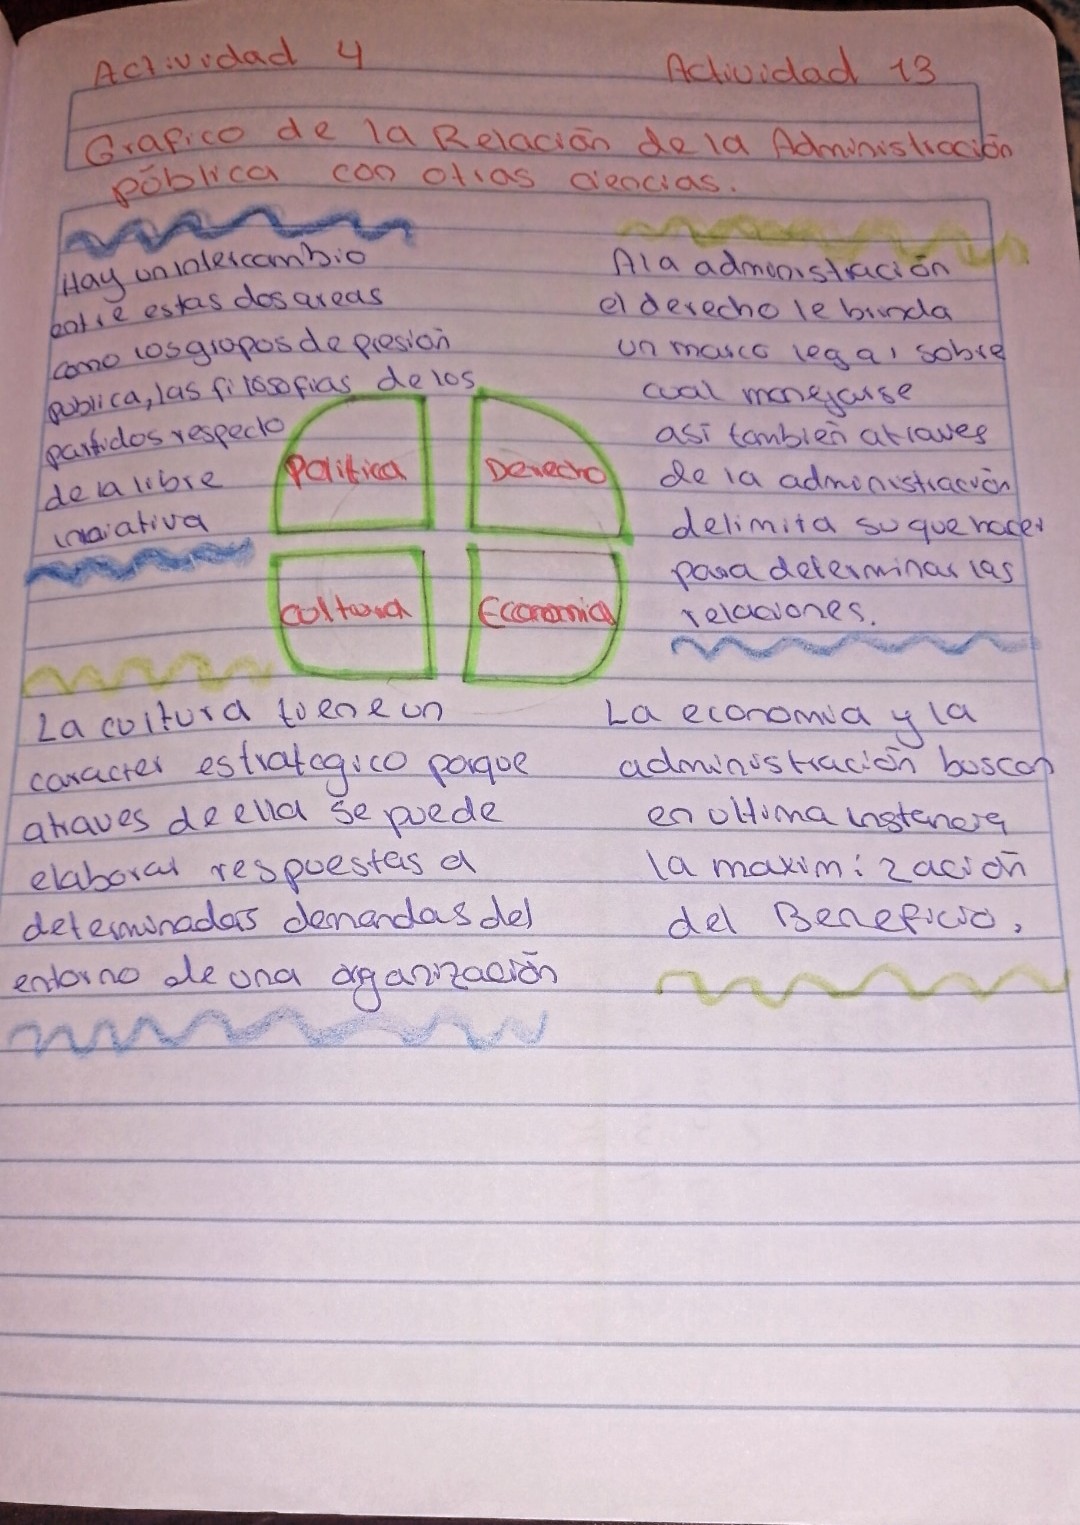 Actividad 4
Actividad 13
Grafico de la Relación de la Administración
pública con otras ciencias.
Hay un intercambio
entre estas dos areas
como los grupos de presión
publica, las filosofias de los
partidos respecto
de la libre
iniciativa
A la administración
el derecho le brinda
un marco legal sobre
cual manejarse
así también atraves
de la administración
delimita su que hacer
para determinar las
relaciones.
Politica
Derecho
Cultura
Economia
La cultura tiene un
caracter estrategico porque
atraves de ella se puede
elaborar respuestas a
determinadas demandas del
entorno de una organización
La economia y la
administración buscan
en ultima instancia
la maximización
del Beneficio.